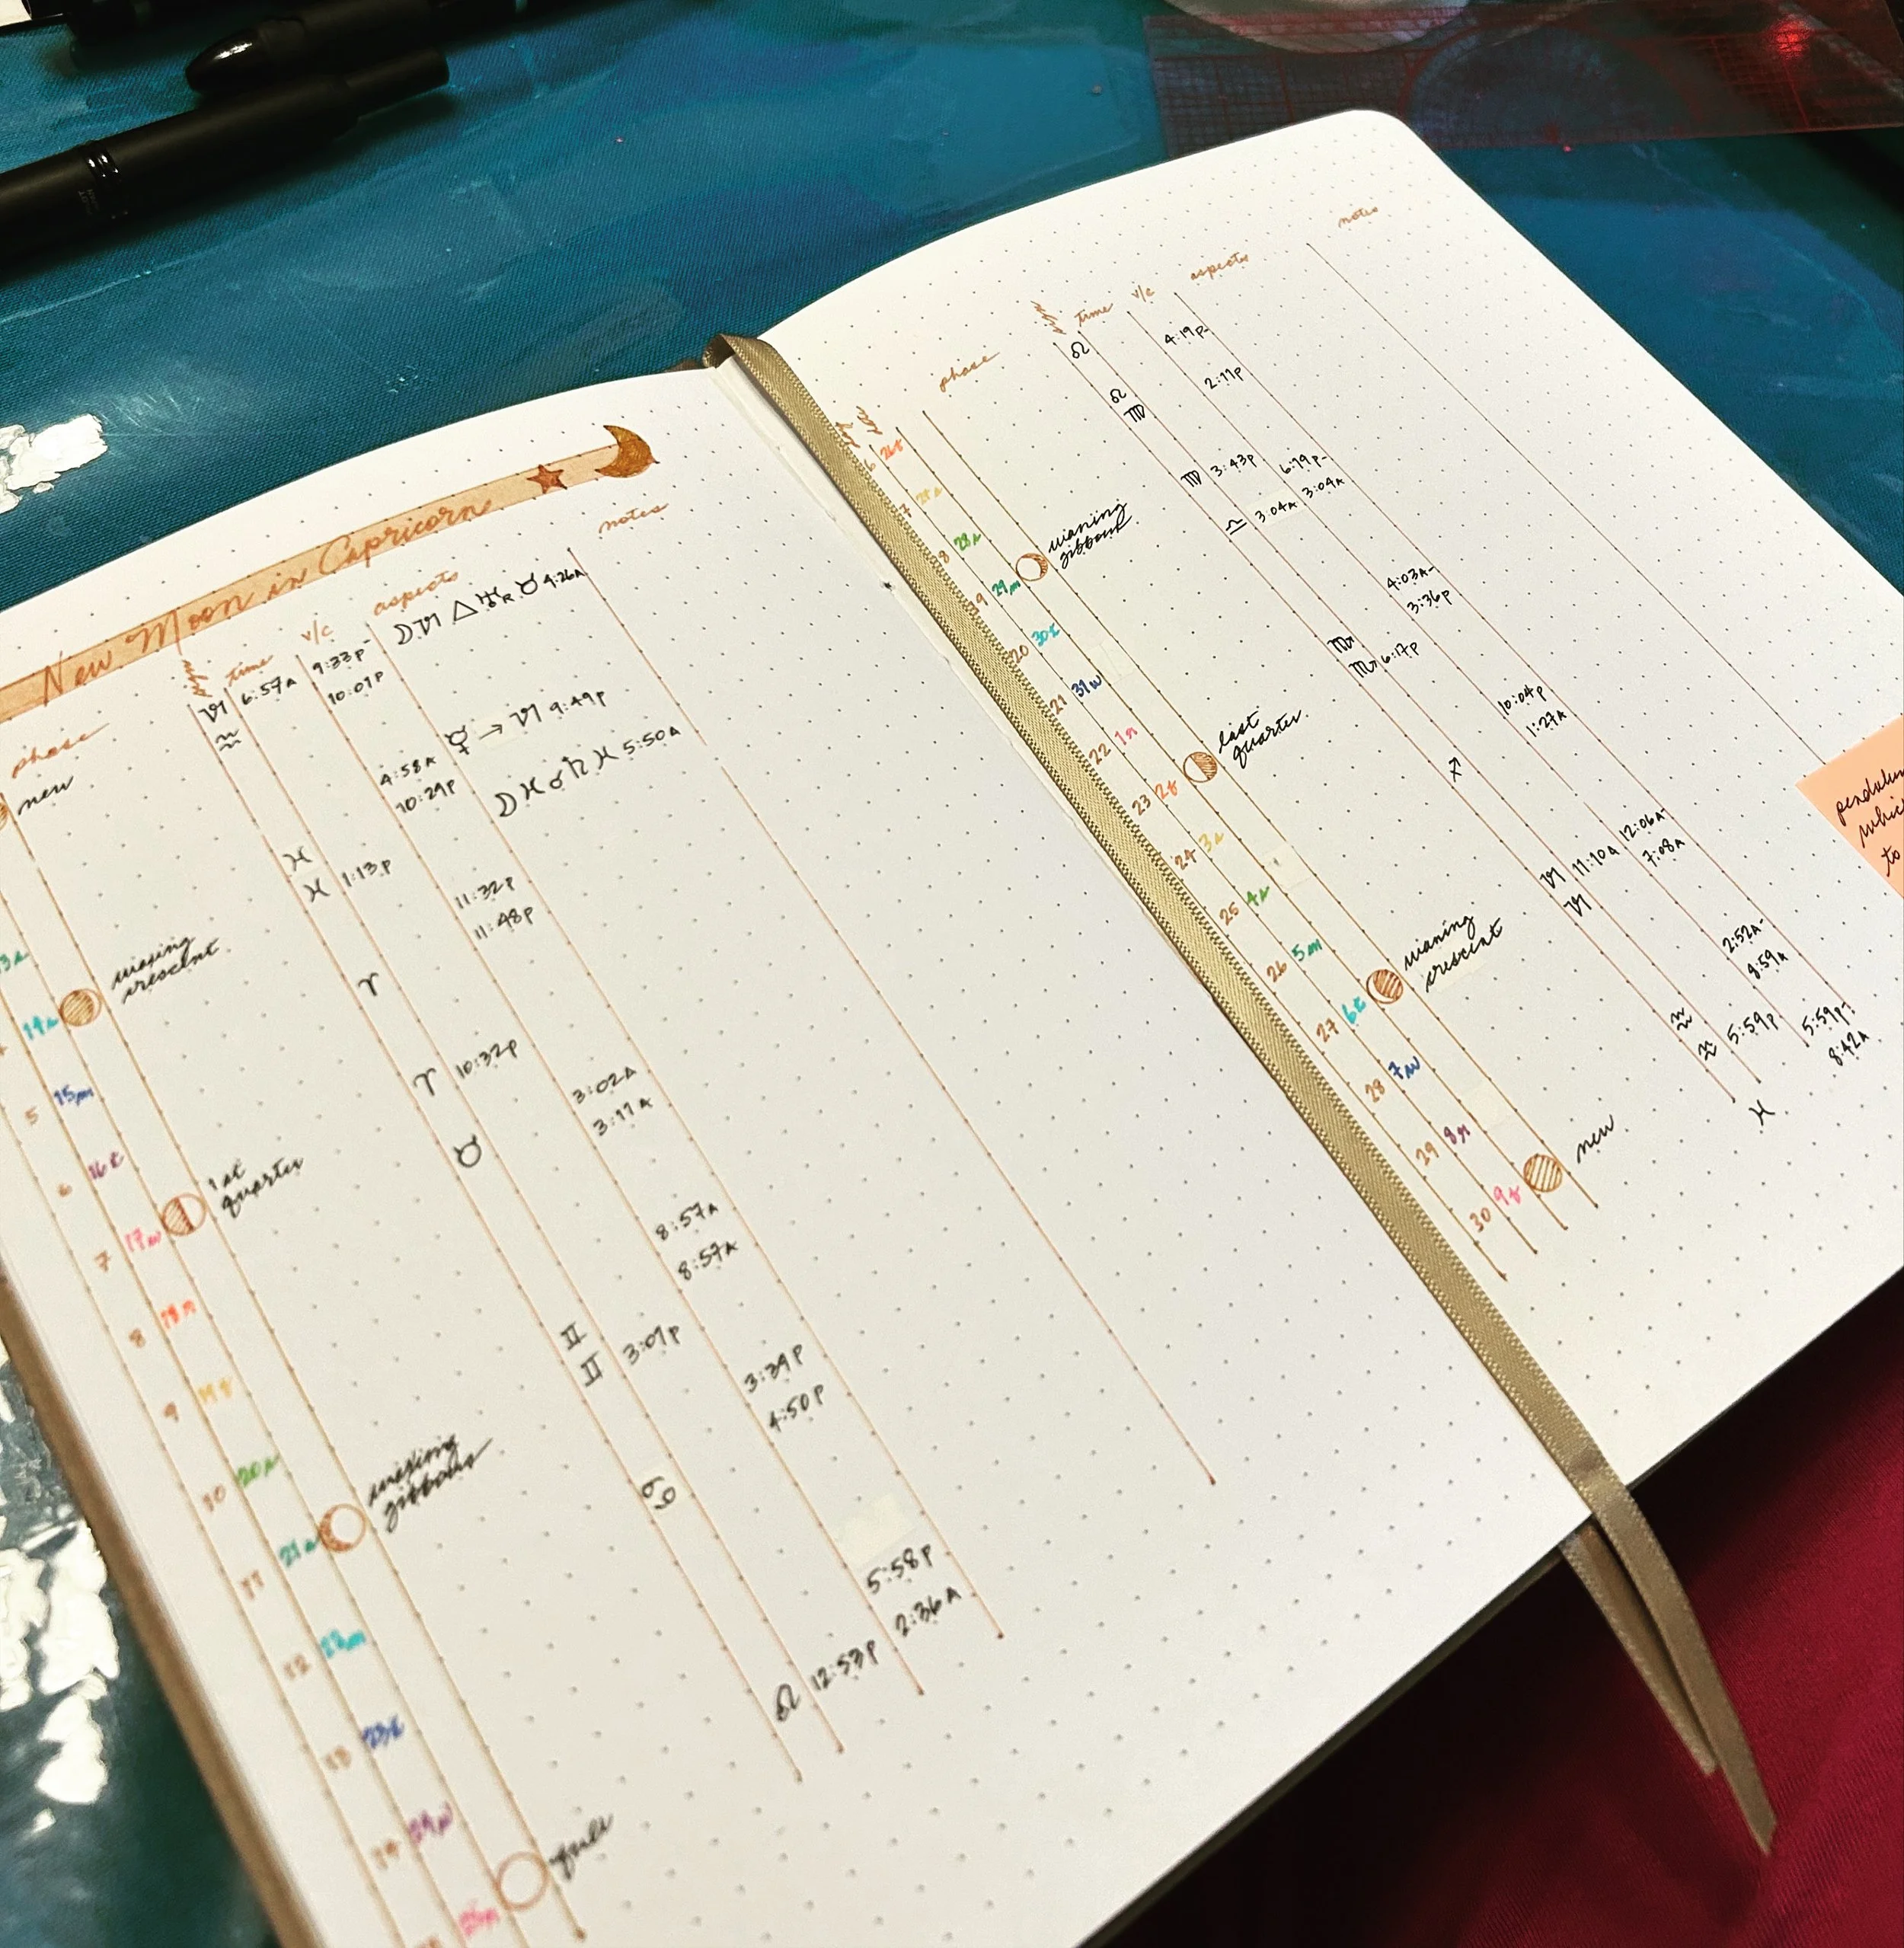 New Moon in Capricorn
phase time v/c aspects notes
new ♑ 6:57A 9:33P- ☽ ♑ △ ♅R ♉ 9:26A
♒ 10:01P
☿ → ♑ 9:49P
4:58A ☽ ♓ ☌ ♄ ♓ 5:50A
10:29P
♓
♓ 1:13P 11:32P
11:48P
13s
14s waxing
crescent ♈
5 15m ♈ 10:32P 3:02A
3:11A
6 16t ♉
7 17w 1st
quarter 8:57A
8:57A
8 18th ♊
♊ 3:07P 3:39P
4:50P
9 19f
10 20s ♋
11 21s waxing
gibbous 5:58P
2:36A
12 22m ♌ 12:53P
13 23t
14 24w
25th full
phase time v/c aspects notes
26f ♌ 4:19P-
27s ♌ 2:11P
♍
28s ♍ 3:43P 6:19P-
3:04A
29m waning
gibbous ♎ 3:04A
20 30t 4:03A-
3:36P
21 31w ♏
♏ 6:17P
22 1th 10:04P
1:27A
23 2f last
quarter ♐
24 3s 12:06A-
7:08A
25 4s ♑ 11:10A
♑
26 5m 2:52A-
8:59A
27 6t waning
crescent ♒
♒ 5:59P 5:59P-
8:42A
28 7w ♓
29 8th
30 9f new
pendulum
to